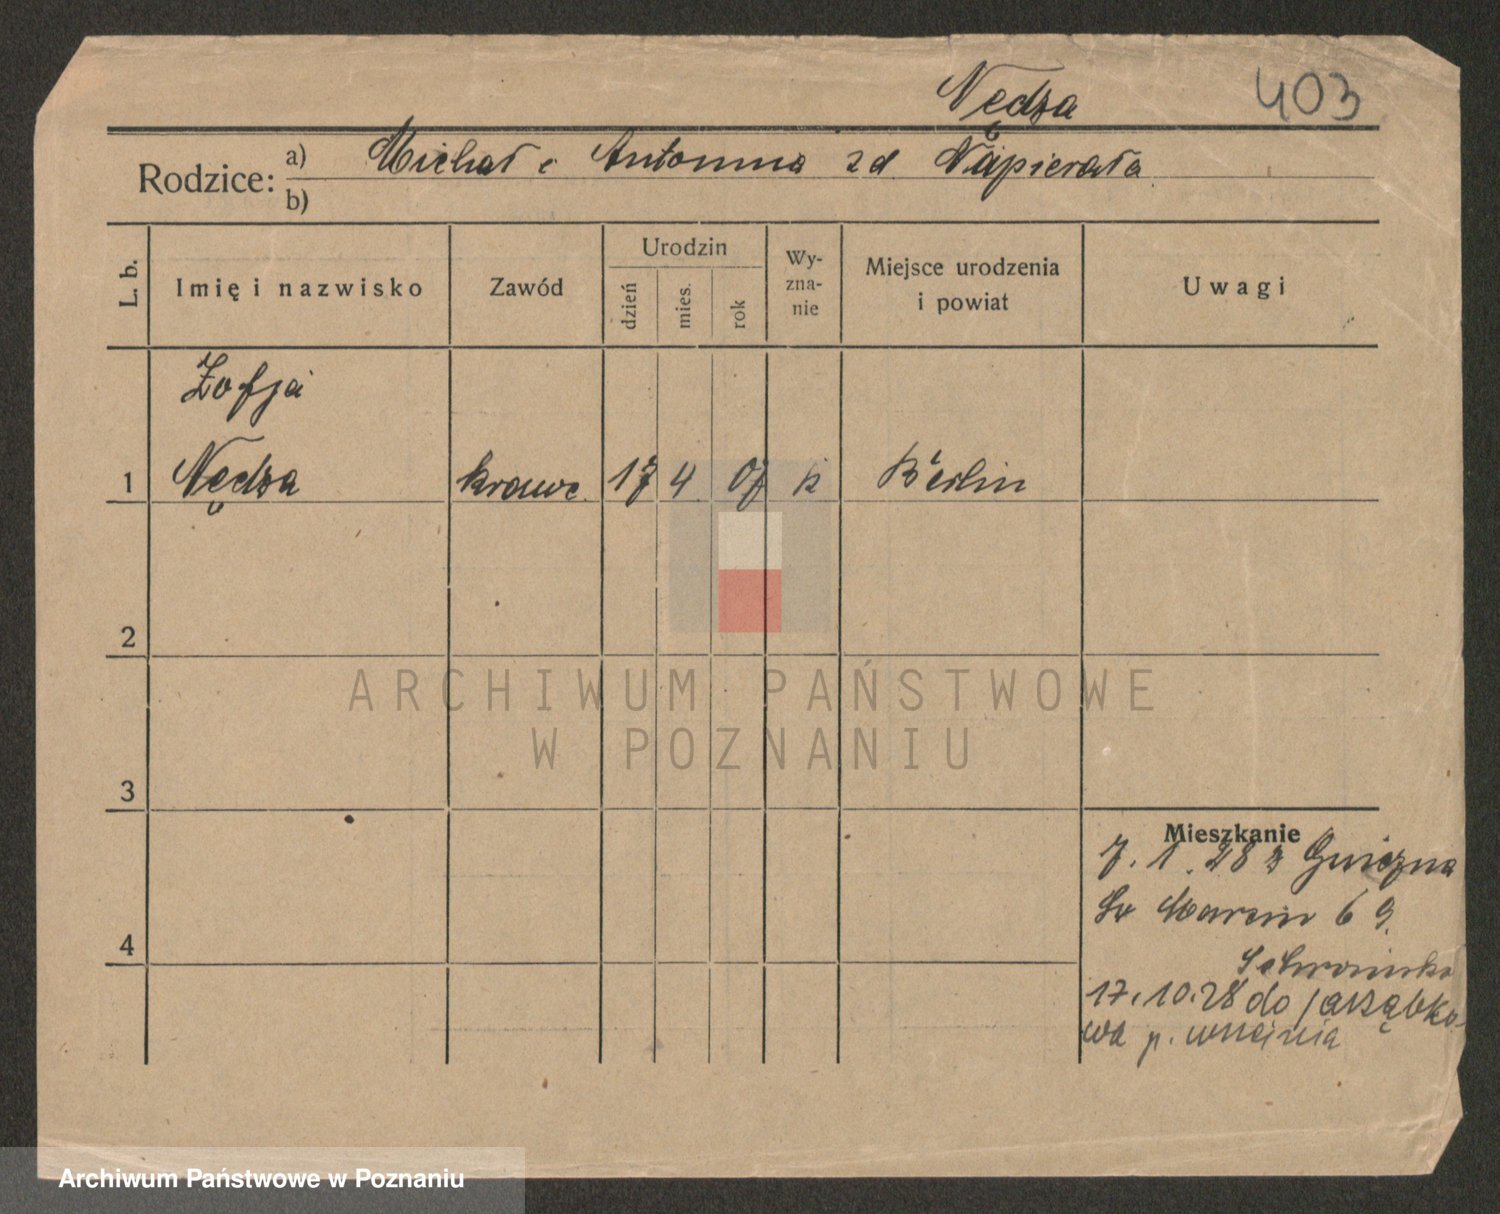 Nędza 403
Rodzice: a) Michał i Antonina zd Napierała
b)
L. b. Imię i nazwisko Zawód Urodzin dzień mies. rok Wy-zna-nie Miejsce urodzenia i powiat Uwagi
Zofja
1 Nędza krawc. 17 4 07 k Berlin
2
ARCHIWUM PAŃSTWOWE
W POZNANIU
3
Mieszkanie
7.1.28 z Gniezna
Św Marcin 69
4
17.10.28 do Jarząbko-
wa p. 
Archiwum Państwowe w Poznaniu